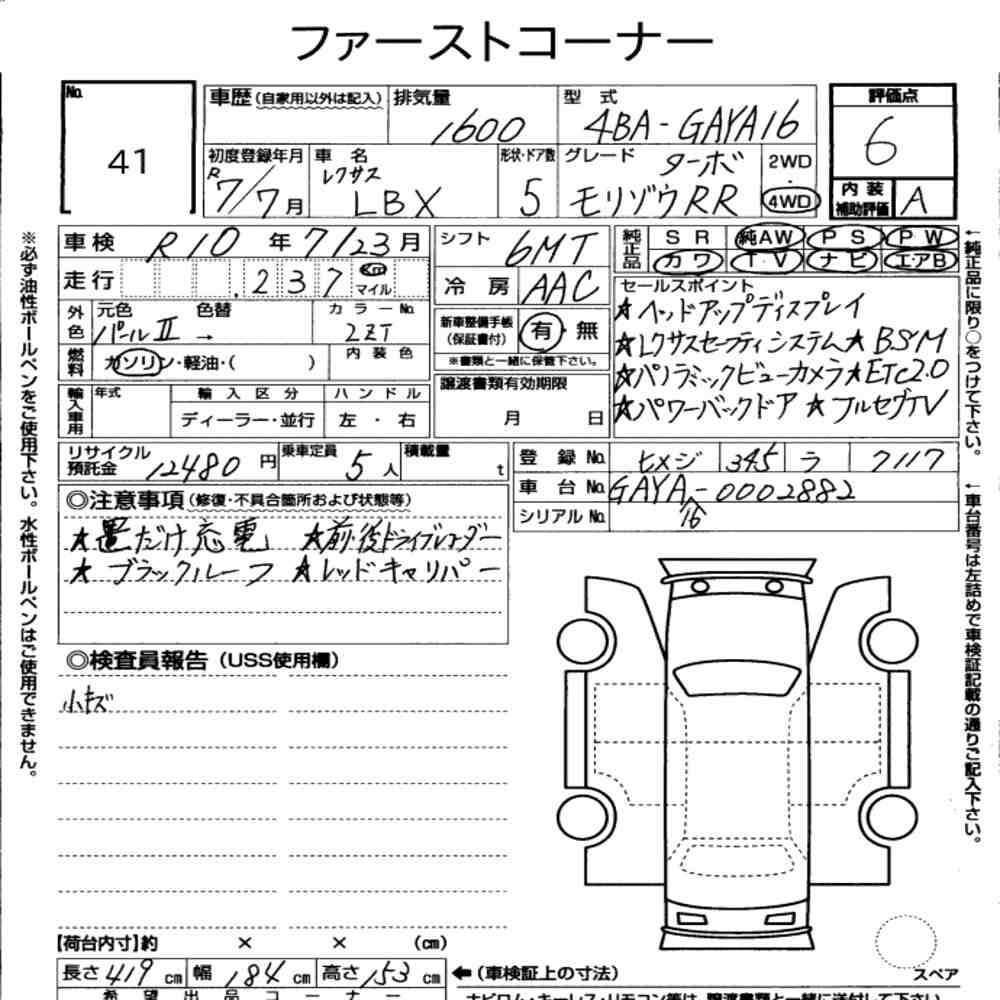 ファーストコーナー
No. 41
車歴 (自家用以外は記入) 排気量 1600 型式 4BA-GAYA16
評価点 6
初度登録年月 R7/7月 車名 レクサス LBX 形状・ドア数 5 グレード ターボ モリゾウRR 2WD・4WD
内装補助評価 A
車検 R10年7/23月
走行 237 Km マイル
シフト 6MT
冷房 AAC
純正品 SR 純AW PS PW
カワ TV ナビ エアB
外色 元色 パールⅡ 色替 → カラーNo. 2ZT
燃料 ガソリン・軽油・( ) 内装色
新車整備手帳(保証書付) 有・無
※書類と一緒に保管下さい。
輸入車用 年式 輸入区分 ディーラー・並行 ハンドル 左・右
譲渡書類有効期限 月 日
セールスポイント
★ヘッドアップディスプレイ
★レクサスセーフティシステム★BSM
★パノラミックビューカメラ★ETC2.0
★パワーバックドア ★フルセグTV
リサイクル預託金 12480円 乗車定員 5人 積載量 t
登録No. ヒメジ 345 ラ 7117
車台No. GAYA16-0002882
シリアルNo.
◎注意事項(修復・不具合箇所および状態等)
★置だけ充電 ★前後ドライブレコーダー
★ブラックルーフ ★レッドキャリパー
◎検査員報告(USS使用欄)
小キズ
【荷台内寸】約 × × (cm)
長さ 419 cm 幅 184 cm 高さ 153 cm
←(車検証上の寸法)
スペア
希望出品コーナー
ナビロム・キーレス・リモコン等は、譲渡書類と一緒に送付して下さい
※必ず油性ボールペンをご使用下さい。水性ボールペンはご使用できません。
←純正品に限り○をつけて下さい。
←車台番号は左詰めで車検証記載の通りご記入下さい。